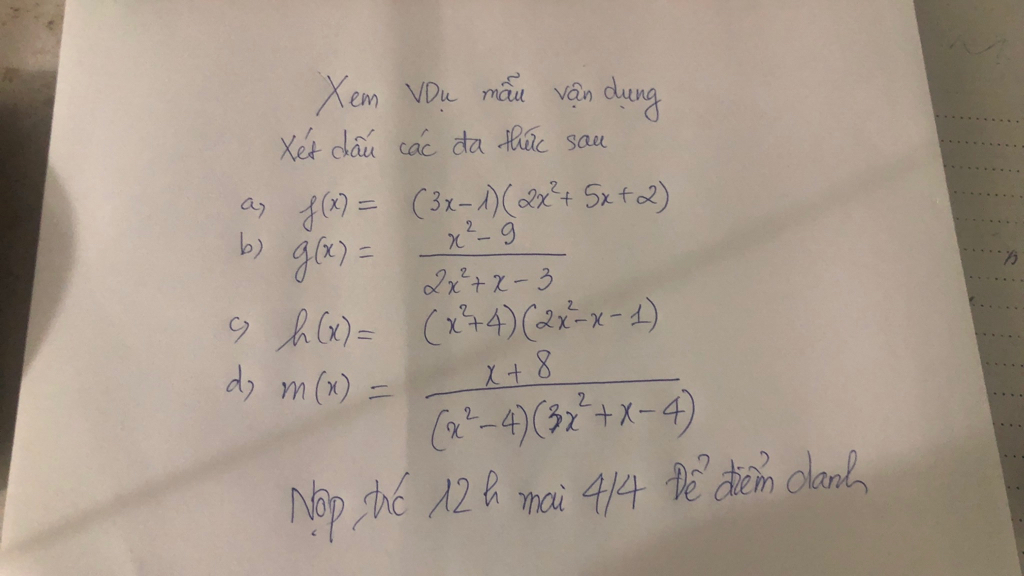 Xem VDụ mẫu vận dụng
Xét dấu các đa thức sau
a) f(x) = (3x-1)(2x²+ 5x+2)
b) g(x) = x²- 9 / 2x²+ x - 3
c) h(x) = (x²+4)(2x²-x-1)
d) m(x) = x + 8 / (x²-4)(3x²+x-4)
Nộp trc 12h mai 4/4 Để điểm danh